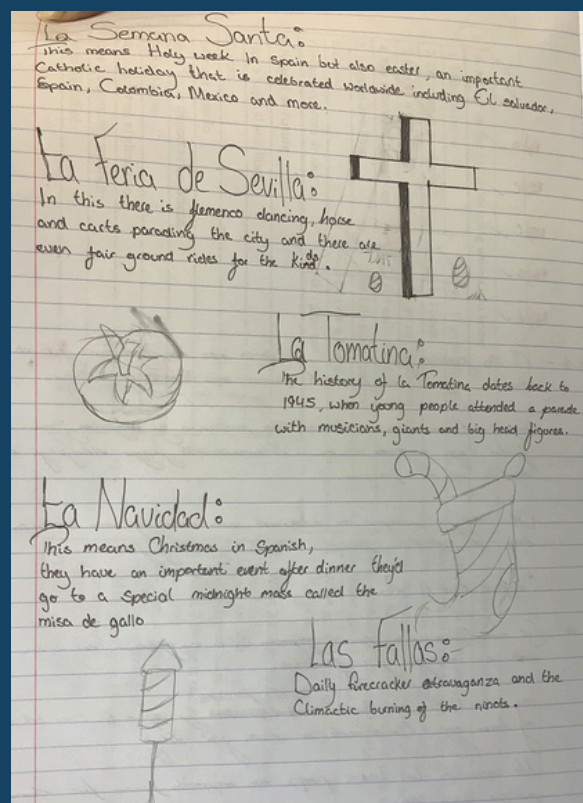 La Semana Santa:
This means Holy week in Spain but also easter, an important
Catholic holiday that is celebrated worldwide including El salvador,
Spain, Colombia, Mexico and more.
La Feria de Sevilla:
In this there is flemenco dancing, horse
and carts parading the city and there are
even fair ground rides for the kids.
La Tomatina:
The history of la Tomatina dates back to
1945, when young people attended a parade
with musicians, giants and big head figures.
La Navidad:
This means Christmas in Spanish,
they have an important event after dinner they'd
go to a special midnight mass called the
misa de gallo
Las Fallas:
Daily firecracker extravaganza and the
Climactic burning of the ninots.